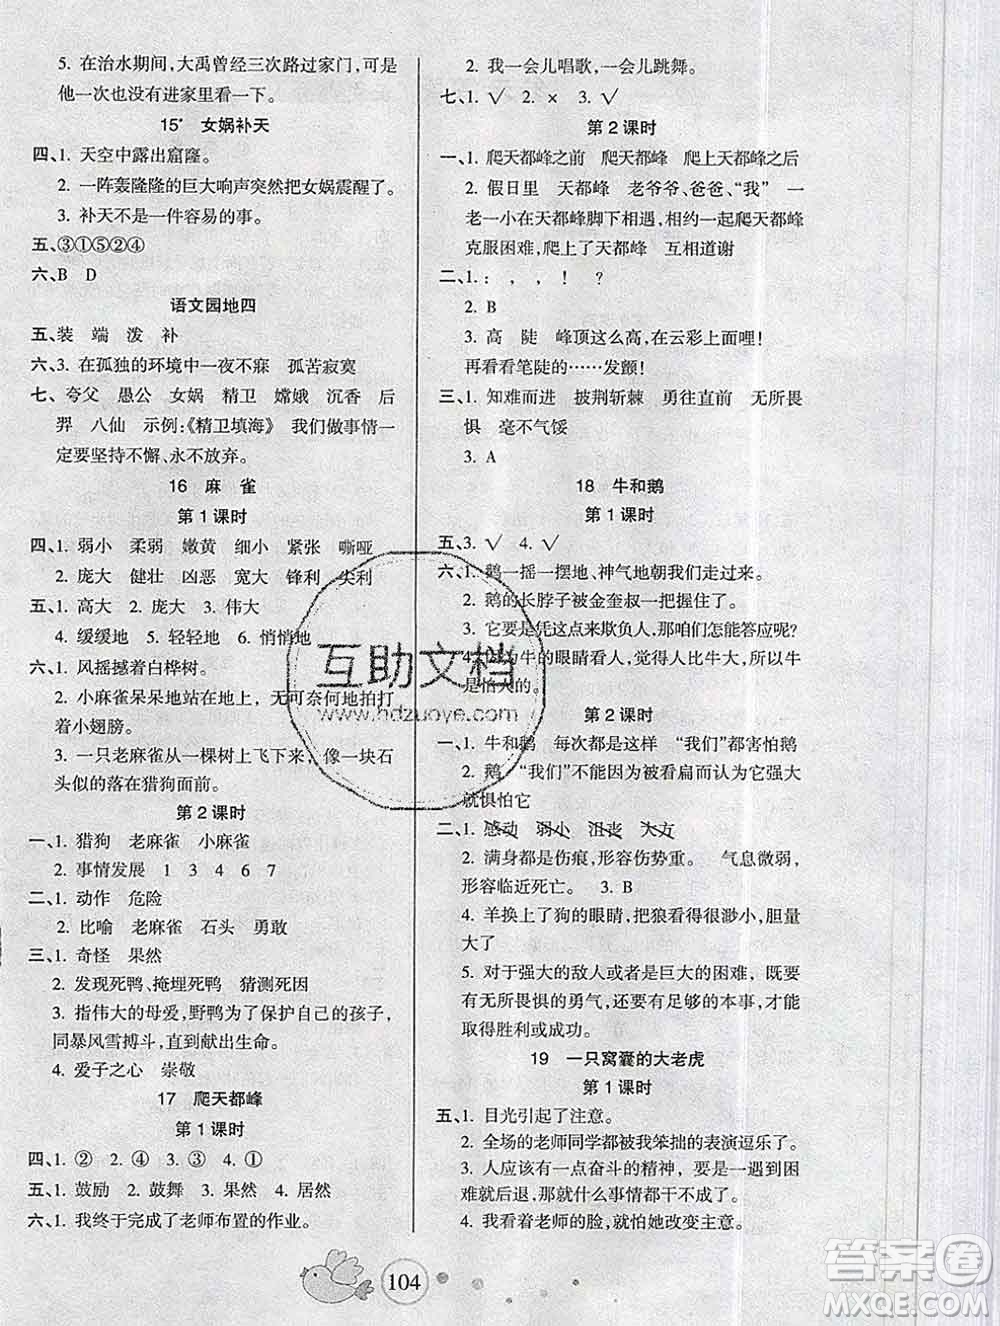 5. 在治水期间,大禹曾经三次路过家门,可是
他一次也没有进家里看一下。
15* 女娲补天
四、1. 天空中露出窟窿。
2. 一阵轰隆隆的巨大响声突然把女娲震醒了。
3. 补天不是一件容易的事。
五、③①⑤②④
六、B D
语文园地四
五、装 端 泼 补
六、3. 在孤独的环境中一夜不寐 孤苦寂寞
七、夸父 愚公 女娲 精卫 嫦娥 沉香 后
羿 八仙 示例:《精卫填海》 我们做事情一
定要坚持不懈,永不放弃。
16 麻 雀
第1课时
四、1. 弱小 柔弱 嫩黄 细小 紧张 嘶哑
2. 庞大 健壮 凶恶 宽大 锋利 尖利
五、1. 高大 2. 庞大 3. 伟大
4. 缓缓地 5. 轻轻地 6. 悄悄地
六、1. 风摇撼着白桦树。
2. 小麻雀呆呆地站在地上,无可奈何地拍打
着小翅膀。
3. 一只老麻雀从一棵树上飞下来,像一块石
头似的落在猎狗面前。
第2课时
一、1. 猎狗 老麻雀 小麻雀
2. 事情发展 1 3 4 6 7
二、1. 动作 危险
2. 比喻 老麻雀 石头 勇敢
三、1. 奇怪 果然
2. 发现死鸭、掩埋死鸭 猜测死因
3. 指伟大的母爱,野鸭为了保护自己的孩子,
同暴风雪搏斗,直到献出生命。
4. 爱子之心 崇敬
17 爬天都峰
第1课时
四、1. ② 2. ④ 3. ③ 4. ①
五、1. 鼓励 2. 鼓舞 3. 果然 4. 居然
六、1. 我终于完成了老师布置的作业。
2. 我一会儿唱歌,一会儿跳舞。
七、1. √ 2. × 3. √
第2课时
一、1. 爬天都峰之前 爬天都峰 爬上天都峰之后
2. 假日里 天都峰 老爷爷、爸爸、“我” 一
老一小在天都峰脚下相遇,相约一起爬天都峰
克服困难,爬上了天都峰 互相道谢
二、1. : , , ! ?
2. B
3. 高 陡 峰顶这么高,在云彩上面哩!
再看看笔陡的……发颤!
三、1. 知难而进 披荆斩棘 勇往直前 无所畏
惧 毫不气馁
3. A
18 牛和鹅
第1课时
五、3. √ 4. √
六、1. 鹅一摇一摆地、神气地朝我们走过来。
2. 鹅的长脖子被金奎叔一把握住了。
3. 它要是凭这点来欺负人,那咱们能答应呢?
4. 因为牛的眼睛看人,觉得人比牛大,所以牛
是怕人的。
第2课时
一、1. 牛和鹅 每次都是这样 “我们”都害怕鹅
2. 鹅 “我们”不能因为被看扁而觉得它强大
就惧怕它
二、1. 感动 弱小 沮丧 大方
2. 满身都是伤痕,形容伤势重。 气息微弱,
形容临近死亡。 3. B
4. 羊换上了狗的眼睛,把狼看得很渺小,胆量
大了
5. 对于强大的敌人或者是巨大的困难,既要
有无所畏惧的勇气,还要有足够的本事,才能
取得胜利或成功。
19 一只窝囊的大老虎
第1课时
五、1. 目光引起了注意。
2. 全场的老师同学都被我笨拙的表演逗乐了。
3. 人应该有一点奋斗的精神,要是一遇到困
难就后退,那就什么事情都干不成了。
4. 我看着老师的脸,就怕她改变主意。
104
互助文档
www.hdzuoye.com
答案圈
MXQE.COM